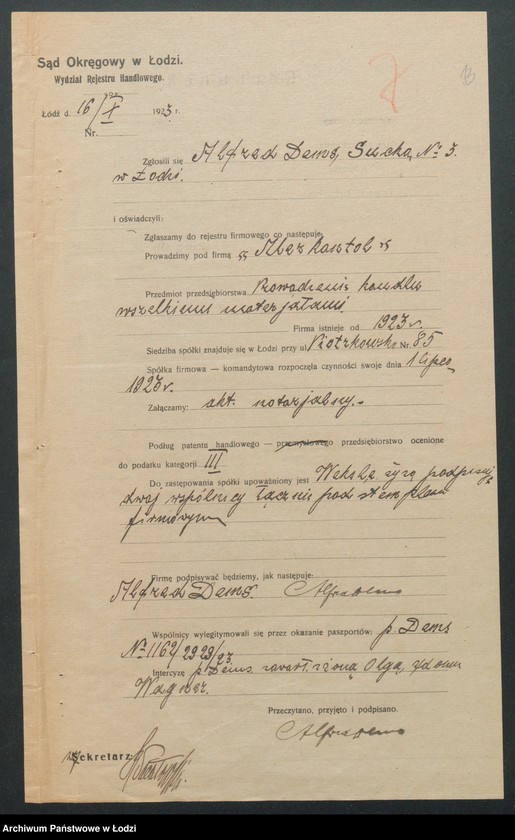 Sąd Okręgowy w Łodzi.
Wydział Rejestru Handlowego.
Łódź d. 16/X 1923 r.
Nr.
Zgłosili się Alfred Dams, Sucha, № 3.
w Łodzi.
i oświadczyli:
Zgłaszamy do rejestru firmowego co następuje:
Prowadzimy pod firmą "Merkantol"
Przedmiot przedsiębiorstwa Prowadzenie handlu
wszelkiemi materjałami.
Firma istnieje od 1923 r.
Siedziba spółki znajduje się w Łodzi przy ul. Piotrkowska Nr. 85
Spółka firmowa — komandytowa rozpoczęła czynności swoje dnia 1 lipca
1923 r.
Załączamy: akt notarjalny.
Podług patentu handlowego — przemysłowego przedsiębiorstwo ocenione
do podatku kategorji III
Do zastępowania spółki upoważniony jest Weksle żyra podpisują
dwaj wspólnicy łącznie pod stemplem
firmowym
Firmę podpisywać będziemy, jak następuje:
Alfred Dams. Alfred Dams
Wspólnicy wylegitymowali się przez okazanie paszportów: p. Dams
№ 1162/2929/23.
Intercyzę p. Dams zawarł z żoną Olgą, z domu
Wagner.
Przeczytano, przyjęto i podpisano.
Alfred Dams
Sekretarz
Archiwum Państwowe w Łodzi